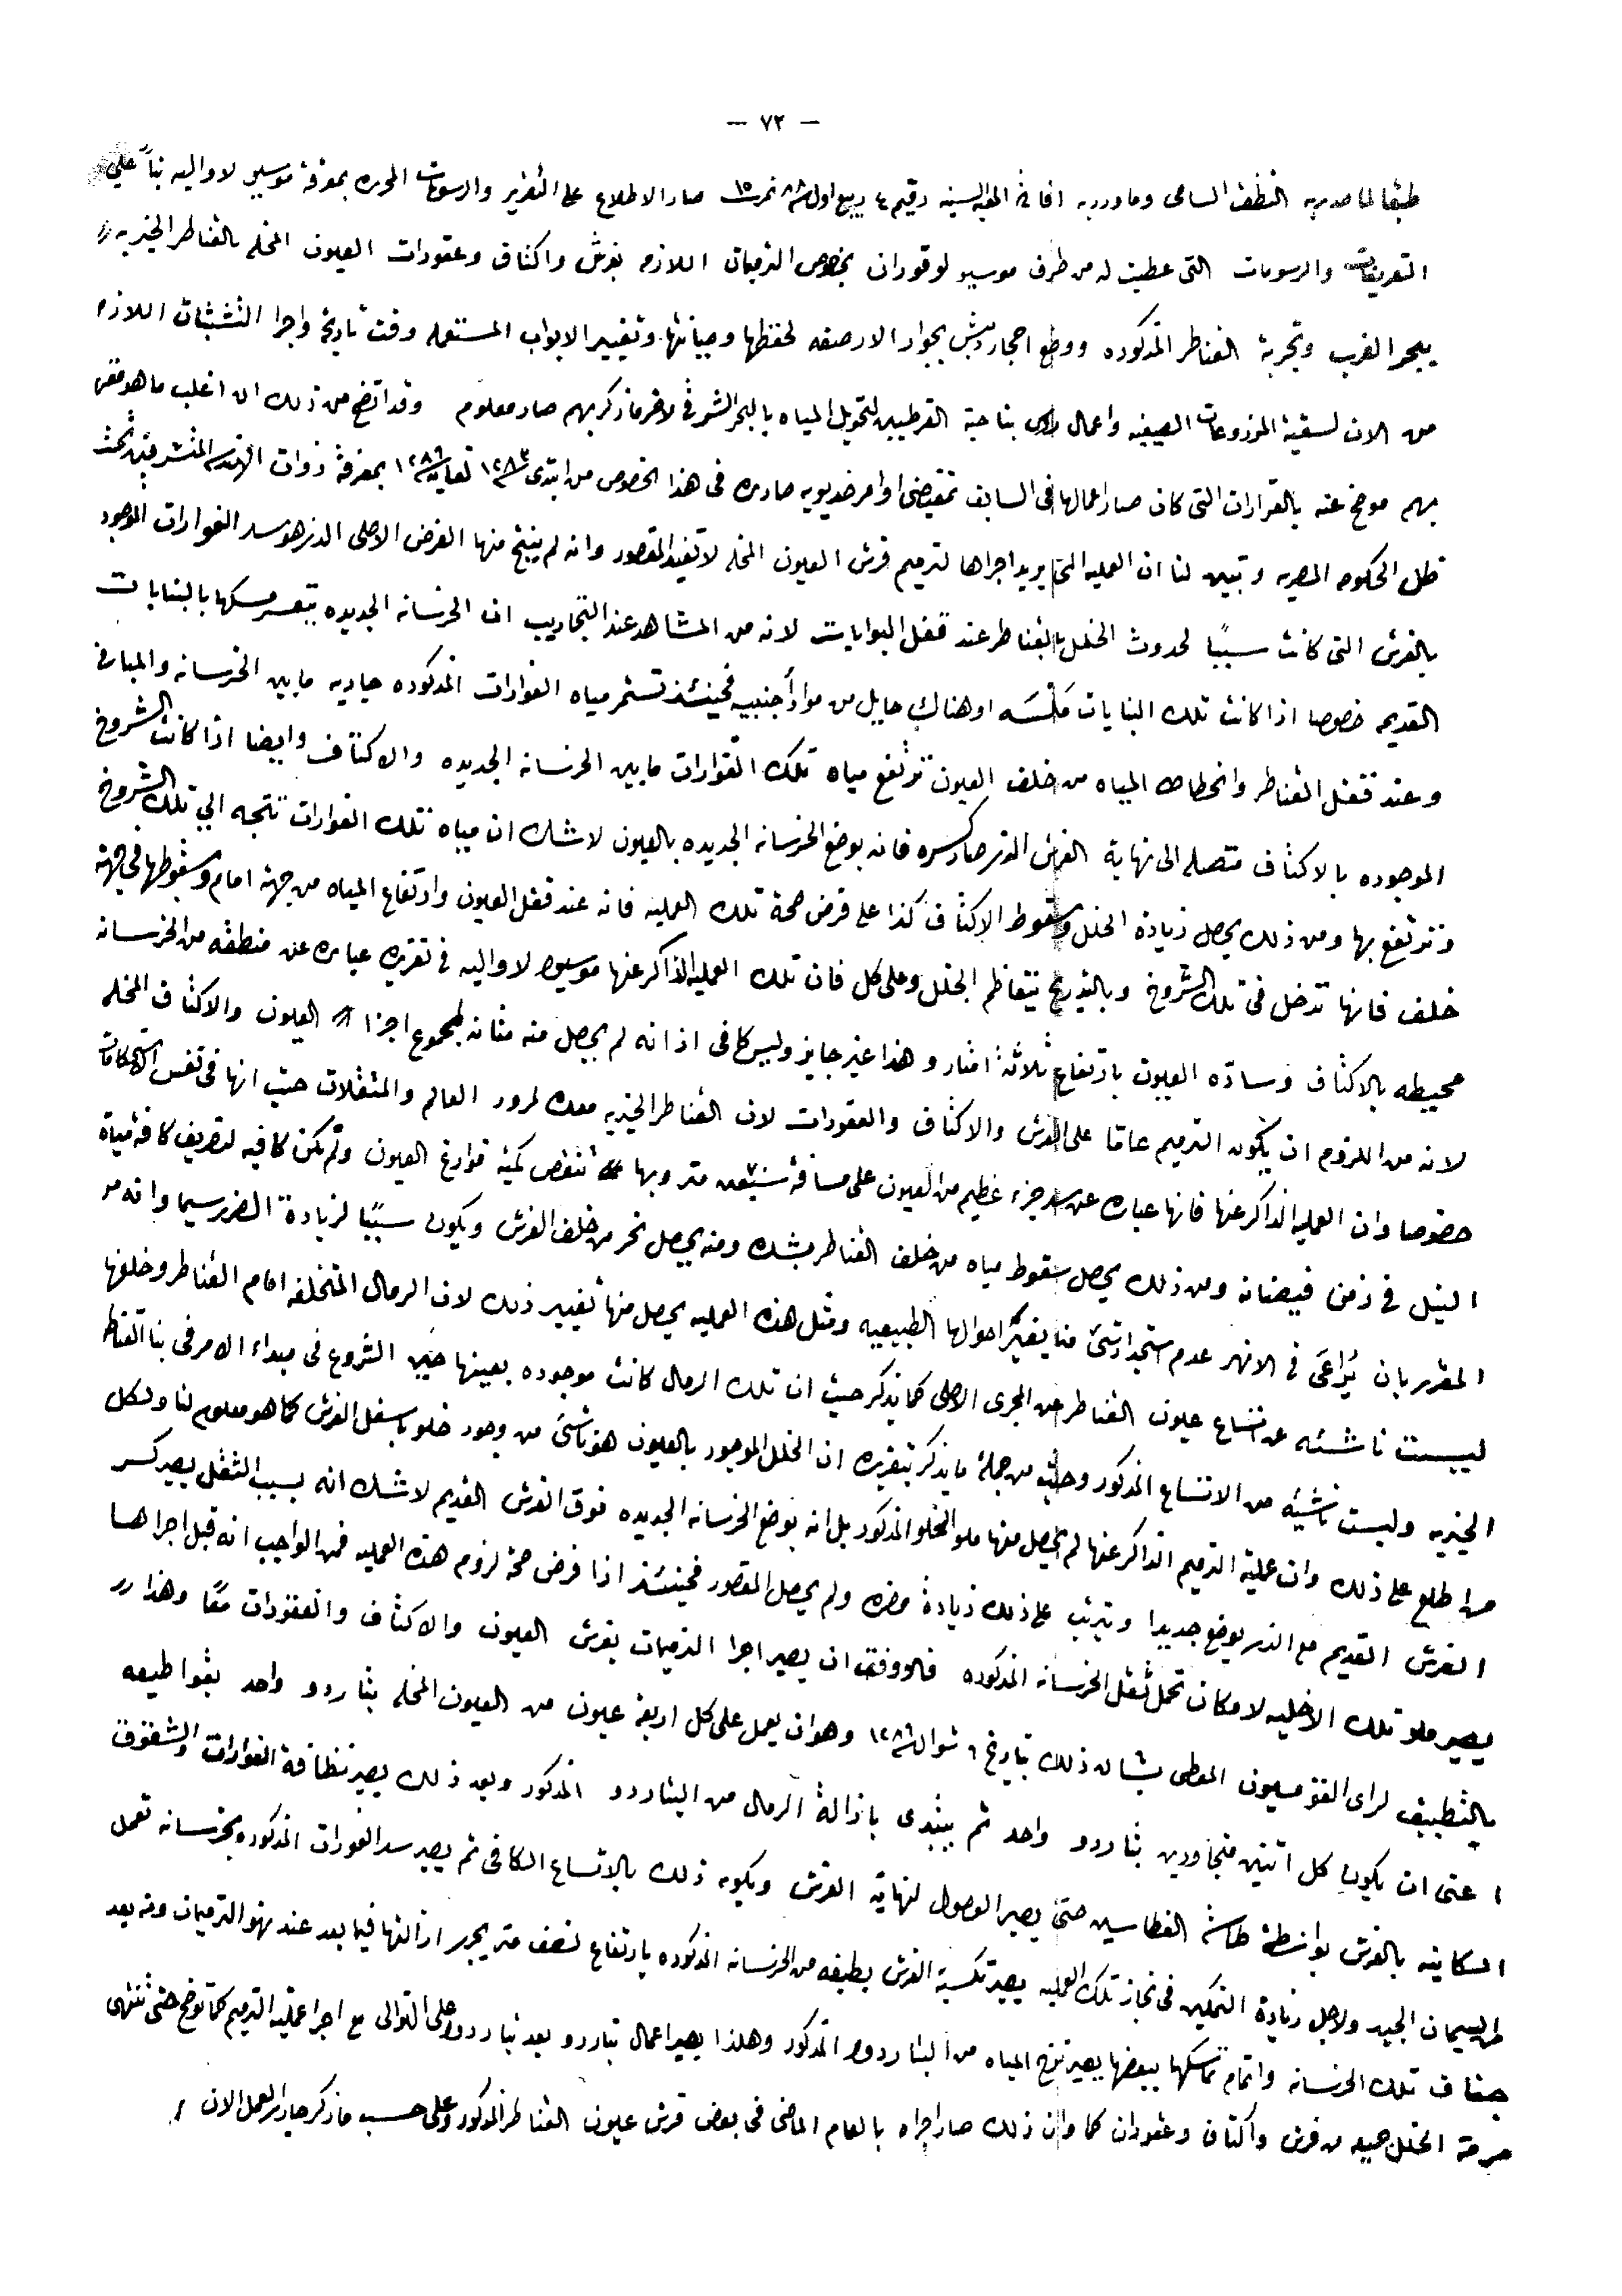 — ٧٢ —
طبقا لما صدر به النطق السامى وما ورد به افاده المعيه السنيه رقيم ٤ ربيع اول نمرة ١٥ صار الاطلاع على التقرير والرسومات المحرره بمعرفة موسيو لاواليه بناً على
التعريفات والرسومات التى عطيت له من طرف موسيو لوقوران بخصوص الترميمات اللازمه بفرش واكتاف وعقودات العيون المخله بالقناطر الخيريه
ببحر الغرب وتجربة القناطر المذكوره ووضع احجار دبش بجوار الارصفه لحفظها وصيانتها وتغيير الابواب المستعمله وقت تاريخه واجرا التشبثات اللازمه
من الان لسقية المزروعات الصيفيه واعمال راس بناحية القرطيين لتحويل المياه بالبحر الشرقى لاخر ما ذكر بهم صار معلوم وقد اتضح من ذلك ان اغلب ما هو
بهم موضح عنه بالقرارات التى كان صار اعمالها فى السابق بمقتضى اوامر خديويه صادره فى هذا الخصوص من ابتدى سنة ١٢٨٣ لغاية سنة ١٢٨٦ بمعرفة ذوات الهندسه المتشرفين تحت
ظل الحكومه المصريه وتبين لنا ان العمليه التى يريد اجراها لترميم فرش العيون المخله لا تفيد المقصود وانه لم ينتج منها الغرض الاصلى الذى هو سد الفوارات الموجود
بالفرش التى كانت سببًا لحدوث الخلل بالقناطر عند قفل البوابات لانه من المشاهد عند التجاريب ان الخرسانه الجديده يتعسر مسكها بالبنايات
القديمه خصوصا اذا كانت تلك البنايات مَلْسَه او هناك حايل من مواد أجنبيه فحينئذ تستمر مياه الفوارات المذكوره جاريه مابين الخرسانه والمبانى
وعند قفل القناطر وانحطاط المياه من خلف العيون ترتفع مياه تلك الفوارات مابين الخرسانه الجديده والاكتاف وايضا اذا كانت الشروخ
الموجوده بالاكتاف متصله الى نهاية الفرش الذى صار كسره فانه بوضع الخرسانه الجديده بالعيون لاشك ان مياه تلك الفوارات تتجه الي تلك الشروخ
وترتفع بها ومن ذلك يحصل زيادة الخلل وسقوط الاكتاف كذا على فرض صحة تلك العمليه فانه عند قفل العيون وارتفاع المياه من جهة امام وسقوطها فى جهة
خلف فانها تدخل فى تلك الشروخ وبالتدريج يتعاظم الخلل وعلى كل فان تلك العمليه الذاكر عنها موسيو لاواليه فى تقريره عباره عن منطقه من الخرسانه
محيطه بالاكتاف وسادّه العيون بارتفاع ثلاثة امتار وهذا غير جايز وليس كافى اذ انه لم يحصل منه متانه لمجموع اجزا العيون والاكتاف المخله
لانه من اللزوم ان يكون الترميم عامًا على الفرش والاكتاف والعقودات لان القناطر الخيريه معده لمرور العالم والمثقلات حيث انها فى نفس الاستحكامات
خصوصا وان العمليه الذاكر عنها فانها عباره عن سد جزء عظيم من العيون على مسافة ستعون متر وبها تنقص كمية فوارغ العيون ولم تكن كافيه لتصريف كافة مياة
النيل فى زمن فيضانه ومن ذلك يحصل سقوط مياه من خلف القناطر بشده ومنه يحصل نحر من خلف الفرش ويكون سببًا لزيادة الضرر سيما وانه من
المقرر بان يُراعَى فى الانهر عدم استجداد شئ منا يغيّر احوالها الطبيعيه ومثل هذه العمليه يحصل منها تغيير ذلك لان الرمال المتخلفه امام القناطر وخلفها
ليست ناشئه عن اتساع عيون القناطر عن المجرى الاصلى كما يذكر حيث ان تلك الرمال كانت موجوده بعينها حين الشروع فى مبداء الامر فى بنا القناطر
الخيريه وليست ناشيه من الاتساع المذكور وحيث من جملة ما يذكر بتقريره ان الخلل الموجود بالعيون هو ناشئ من وجود خلو باسفل الفرش كما هو معلوم لنا ولكل
من اطلع على ذلك وان عملية الترميم الذاكر عنها لم يحصل منها ملو الخلو المذكور بل انه بوضع الخرسانه الجديده فوق الفرش القديم لاشك انه بسبب الثقل يصير كسر
الفرش القديم مع الذى يوضع جديدا ويترتب على ذلك زيادة مضره ولم يحصل المقصود فحينئذ اذا فرض صحة لزوم هذه العمليه فمن الواجب انه قبل اجراها
يصير ملو تلك الاخليه لامكان تحمل ثقل الخرسانه المذكوره فالاوفق ان يصير اجرا الترميمات بفرش العيون والاكتاف والعقودات معًا وهذا
بالتطبيق لراى القومسيون المعطى بشان ذلك بتاريخ ٦ شوال سنة ١٢٨٦ وهو ان يعمل على كل اربعة عيون من العيون المخله بتاردو واحد بقواطيعه
اعنى ان يكون كل اتنين متجاورين بتاردو واحد ثم يبتدى بازالة الرمال من البتاردو المذكور وبعد ذلك يصير نظافة الفوارات والشقوق
الكاينه بالفرش بواسطة طاقم الغطاسين حتى يصير الوصول لنهاية الفرش ويكون ذلك بالاتساع الكافى ثم يصير سد الفورات المذكوره بخرسانه تعمل
من السيمان الجيد ولاجل زيادة التمكين فى نجاز تلك العمليه يصير تكسية الفرش بطبقه من الخرسانه المذكوره بارتفاع نصف متر يجرى ازالتها فيما بعد عند نهو الترميمات ومن بعد
جفاف تلك الخرسانه واتمام تماسكها ببعضها يصير نزح المياه من البتاردو المذكور وهكذا يصير اعمال بتاردو بعد بتاردو على التوالى مع اجرا عملية الترميم كما توضح حتى تنتهى
مرمة الخلل جميعه من فرش واكتاف وعقودات كما وان ذلك صار اجراه بالعام الماضى فى بعض فرش عيون القناطر المذكور وعلى حسب ما ذكر جارى العمل الان